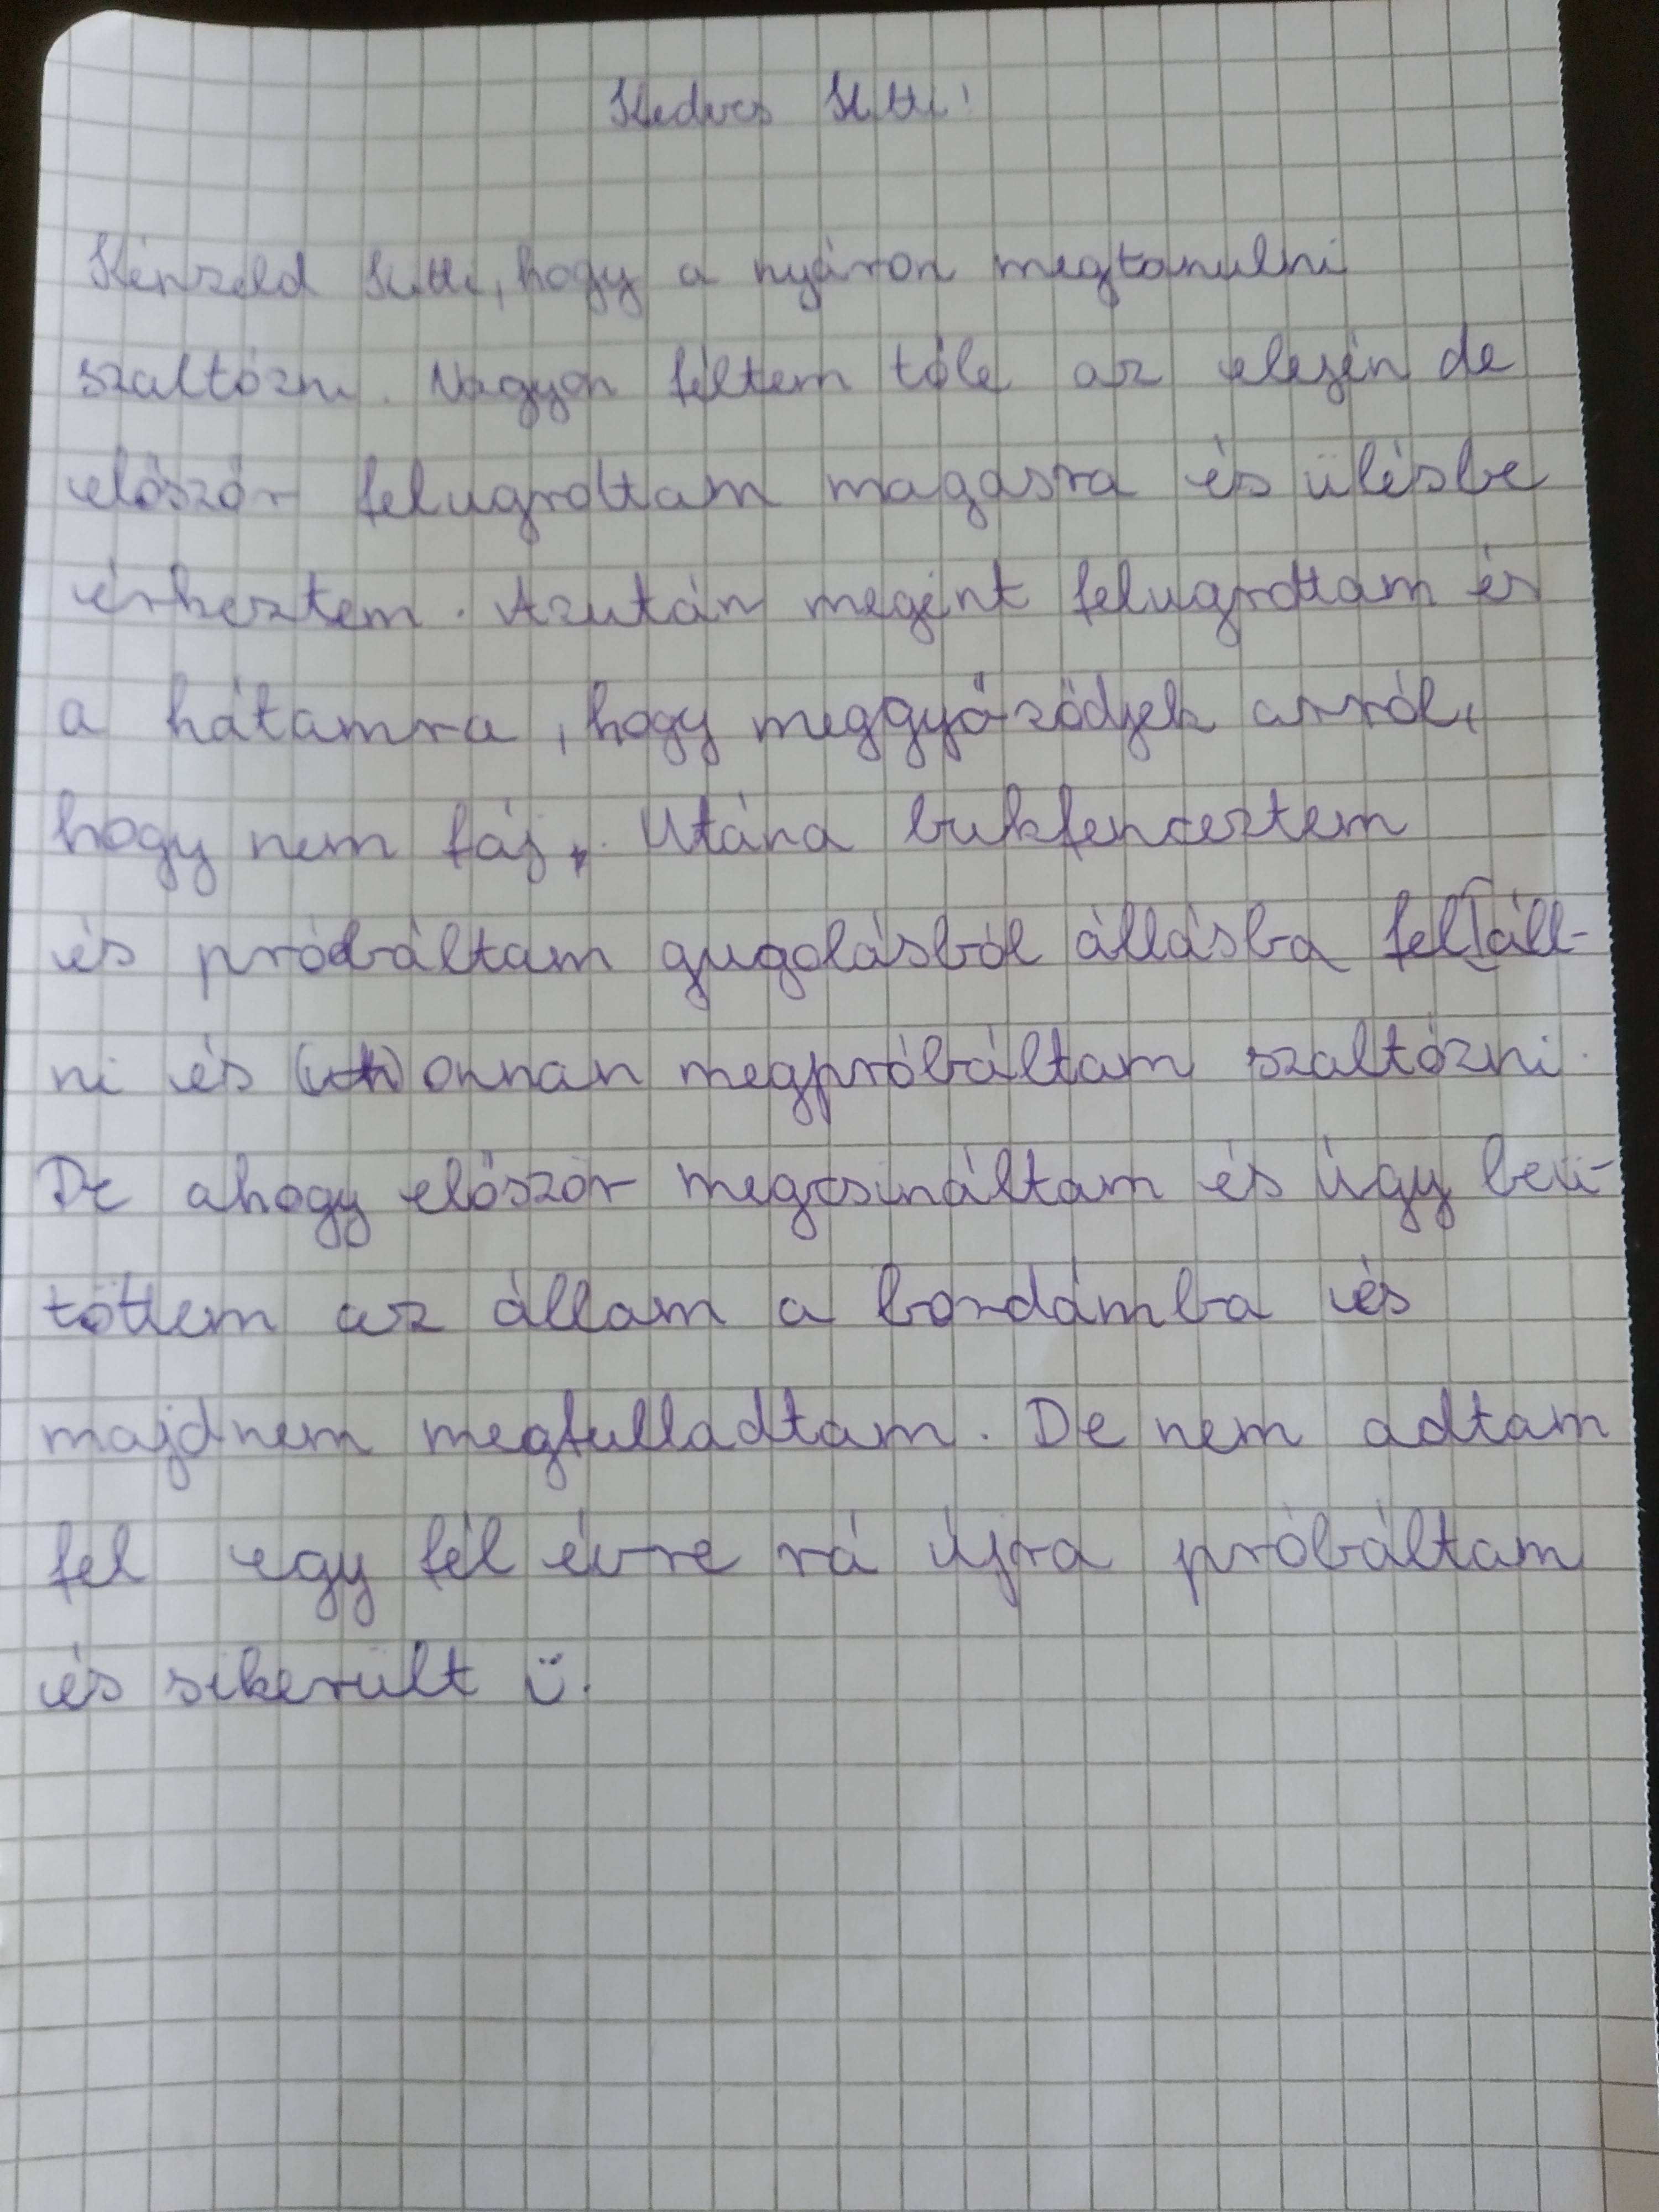 Kedves Kitti!
Kénzeld Kitti, hogy a nyáron megtanulni
szaltózni. Nagyon féltem tőle az elején de
először felugrottam magasra és ülésbe
érkeztem. Azután megint felugrottam és
a hátamra, hogy meggyőződjek arról,
hogy nem fáj. Utána bukfenceztem
és próbáltam gugolásból állásba feláll-
ni és onnan megpróbáltam szaltózni.
De ahogy először megcsináltam és úgy beü-
töttem az állam a bordámba és
majdnem megfulladtam. De nem adtam
fel egy fél évre rá újra próbáltam
és sikerült ü.